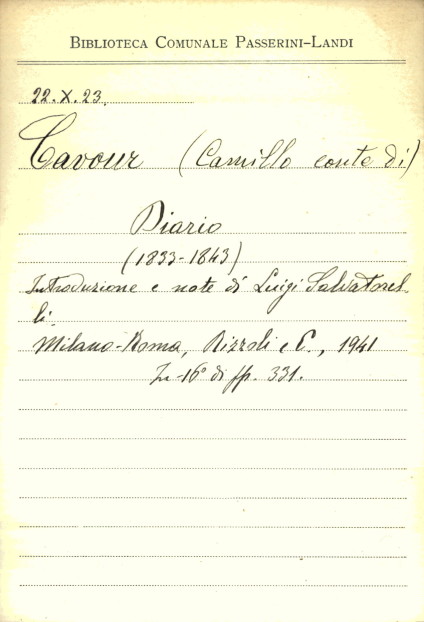 BIBLIOTECA COMUNALE PASSERINI-LANDI
22.X.23.
Cavour (Camillo conte di)
Diario
(1833-1843)
Introduzione e note di Luigi Salvatorel-
li.
Milano-Roma, Rizzoli e C., 1941
In-16° di pp. 331.